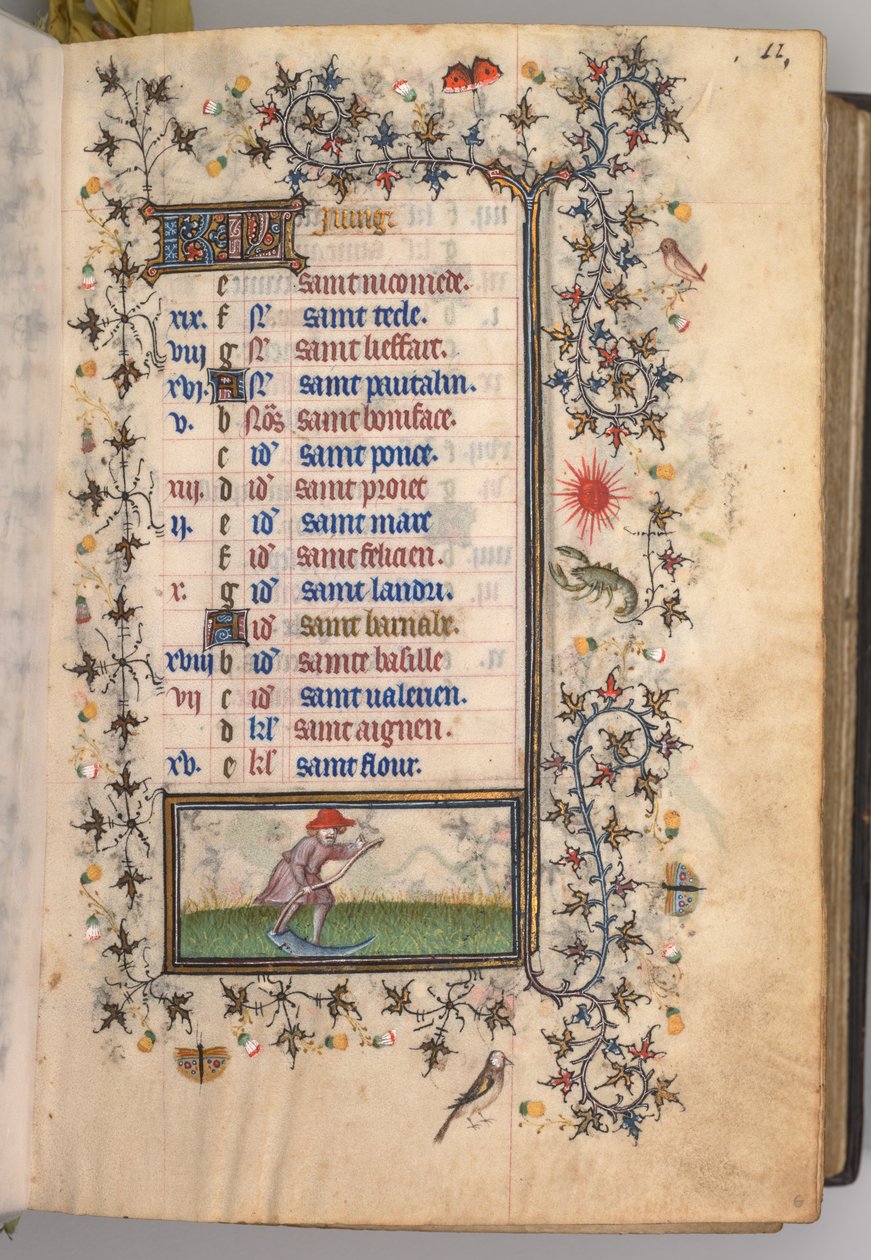 11.
KL Juing.
e saint nicomede.
xix. f N saint tecle.
viij g N saint lieffart.
xvj. A N saint pantalin.
v. b Nōs saint boniface.
c id' saint ponce.
xiij. d id' saint proiet
ij. e id' saint marc
f id' saint felicien.
x. g id' saint landri.
A id' saint barnabe.
xviij b id' sainte basille
vij c id' saint ualerien.
d kl' saint aignen.
xv. e kl' saint flour.
6